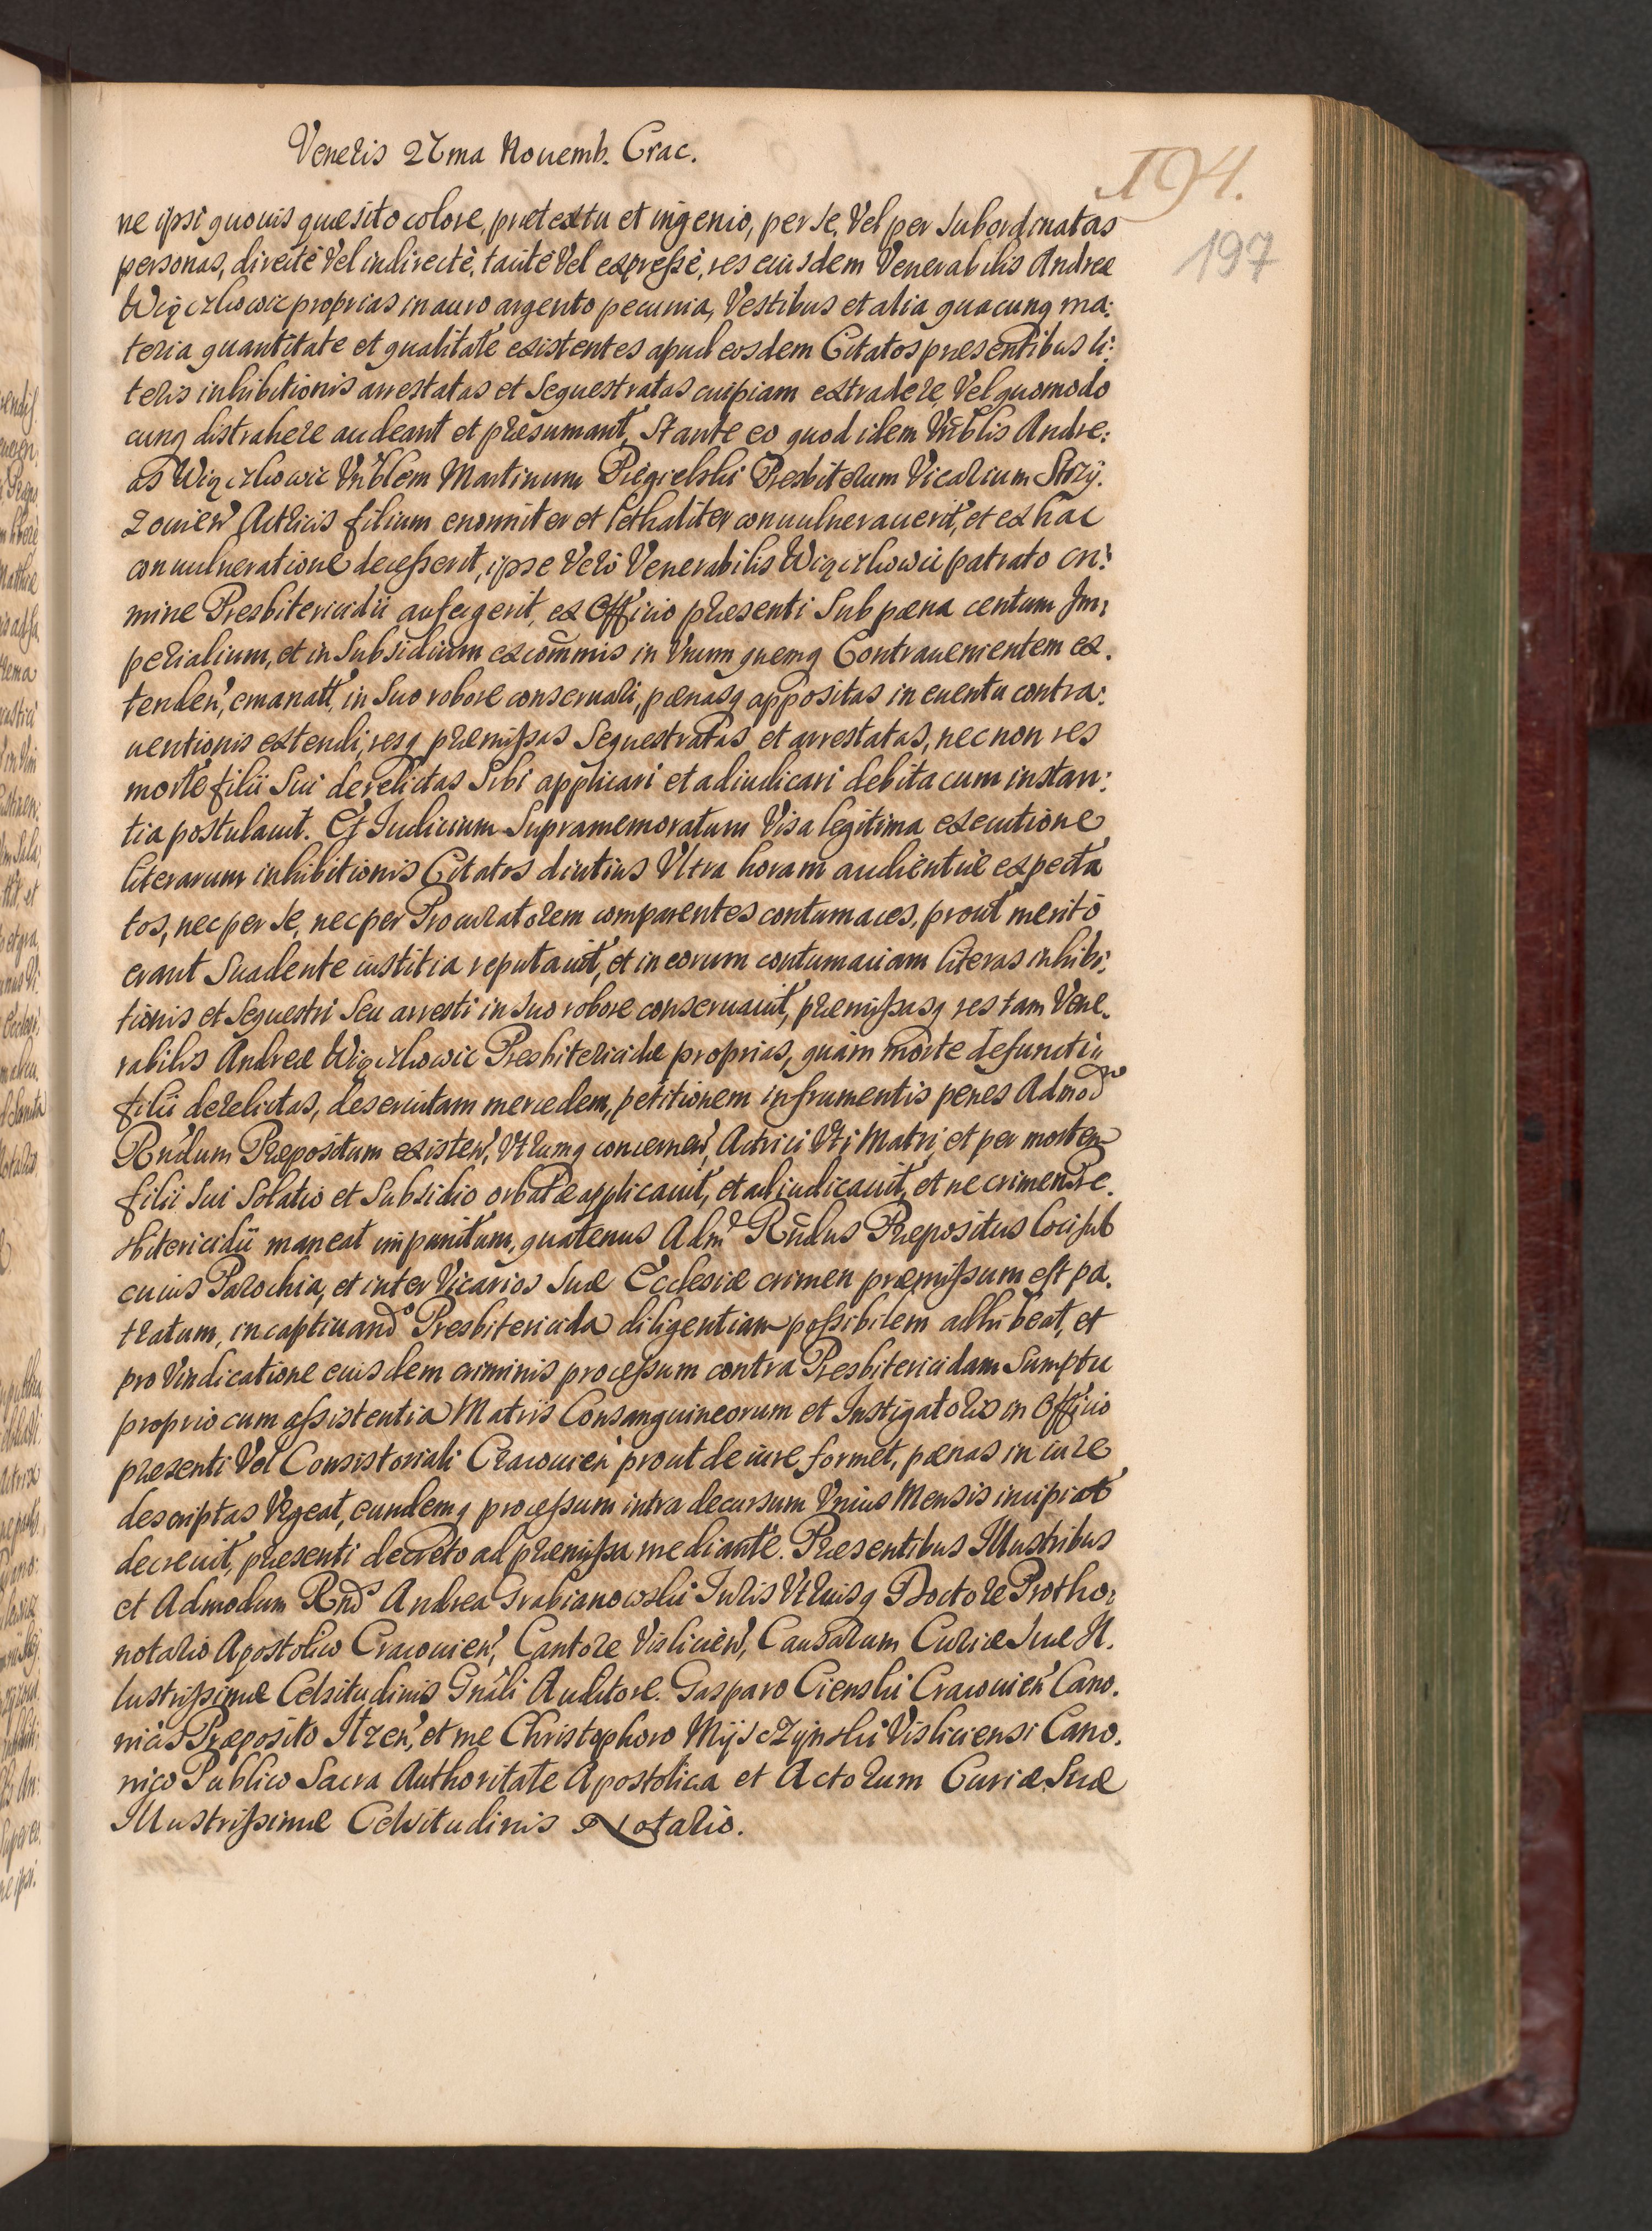 Veneris 27ma Nouemb. Crac.
194.
197
ne ipsi quouis quæsito colore, prætextu et ingenio, per se, Vel per subordinatas
personas, directè Vel indirectè, tacitè Vel expreßè, res eiusdem Venerabilis Andreæ
proprias in auro argento pecunia, Vestibus et alia quacunq ma:
teria quantitate et qualitate existentes apud eosdem Citatos præsentibus li:
teris inhibitionis arrestatas et Sequestratas cuipiam extradere, Vel quomodo
cunq distrahere audeant et præsumant, Stante eo quod idem Vnblis Andre:
as Vnblem Martinum Piegielski Presbiterum Vicarium Strzy.
zouien' Actricis filium enormiter et lethaliter conuulnerauerit, et ex hac
conuulneratione decesserit, ipse Verò Venerabilis patrato cri:
mine Presbitericidii aufugerit, ex Officio præsenti Sub pæna centum Im:
perialium, et in Subsidium excommis in Vnum quemq Contrauenientem ex.
tenden', emanatt, in Suo robore conseruari, pænasq appositas in euentu contra:
uentionis extendi, resq præmißas Sequestratas et arrestatas, nec non res
morte filii Sui derelictas Sibi applicari et adiudicari debita cum instan:
tia postulauit. Et Iudicium Supramemoratum Visa legitima executione
literarum inhibitionis Citatos diutius Vltra horam audientiæ expecta
tos, nec per se, nec per Procuratorem comparentes contumaces, prout meritò
erant Suadente iustitia reputauit, et in eorum contumaciam literas inhibi:
tionis et Sequestri Seu arresti in Suo robore conseruauit, præmißasq res tam Vene.
rabilis Andreæ Presbitericidæ proprias, quàm morte defuncti
filii derelictas, deseruitam mercedem, petitionem in frumentis penes Admod
Rndum Præpositum existen', Vtrumq concernen', Actrici Vti Matri, et per mortem
filii Sui Solatio et Subsidio orbatæ applicauit, et adiudicauit, et ne crimen Pre.
sbitericidii maneat impunitum, quatenus Adm Rndus Præpositus loci sub
cuius Parochia, et inter Vicarios Suæ Ecclesiæ crimen præmißum est pa.
tratum, in captiuand Presbitericida diligentiam poßibilem adhibeat, et
pro Vindicatione eiusdem criminis proceßum contra Presbitericidam Sumptu
proprio cum aßistentia Matris Consanguineorum et Instigatoris in Officio
præsenti Vel Consistoriali Cracouien' prout de iure formet, pænas in iure
descriptas Vrgeat, eundemq proceßum intra decursum Vnius Mensis incipiat
decreuit, præsenti decreto ad præmißa mediante. Præsentibus Illustribus
et Admodum Rnd Andrea Grabianowski Iuris Vtriusq Doctore Protho:
notario Apostolico Cracouien', Cantore Vislicien', Causarum Curiæ Suæ Il.
lustrißimæ Celsitudinis Gnãli Auditore. Gasparo Cienski Cracouien' Cano.
nicis Præposito Ilzen', et me Christophoro Myszczynski Visliciensi Cano.
nico Publico Sacra Authoritate Apostolica et Actorum Curiæ Suæ
Illustrißimæ Celsitudinis Notario.